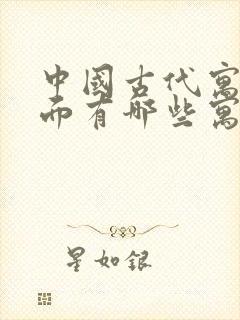 中國古代寓
而有哪些寓
星如銀